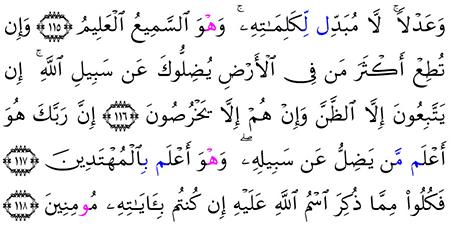 وَعَدْلًاۚ لَّا مُبَدِّل لِّكَلِمَـٰتِهِۦۚ وَهْوَ ٱلسَّمِيعُ ٱلْعَلِيمُ ١١٥ وَإِن
تُطِعْ أَكْثَرَ مَن فِى ٱلْأَرْضِ يُضِلُّوكَ عَن سَبِيلِ ٱللَّهِۚ إِن
يَتَّبِعُونَ إِلَّا ٱلظَّنَّ وَإِنْ هُمْ إِلَّا يَخْرُصُونَ ١١٦ إِنَّ رَبَّكَ هُوَ
أَعْلَم مَّن يَضِلُّ عَن سَبِيلِهِۦۖ وَهْوَ أَعْلَم بِٱلْمُهْتَدِينَ ١١٧
فَكُلُوا۟ مِمَّا ذُكِرَ ٱسْمُ ٱللَّهِ عَلَيْهِ إِن كُنتُم بِـَٔايَـٰتِهِۦ مُومِنِينَ ١١٨